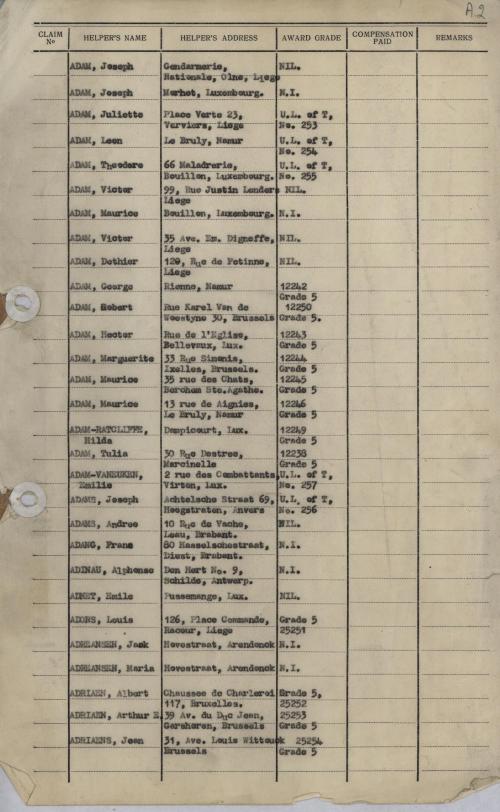 A.2
CLAIM No HELPER'S NAME HELPER'S ADDRESS AWARD GRADE COMPENSATION PAID REMARKS
ADAM, Joseph Gendarmerie, NIL.
Nationale, Olne, Liege
ADAM, Joseph Morhet, Luxembourg. N.I.
ADAM, Juliette Place Verte 23, U.L. of T,
Verviers, Liege No. 253
ADAM, Leon Le Bruly, Namur U.L. of T,
No. 254
ADAM, Theodore 66 Maladrerie, U.L. of T,
Bouillon, Luxembourg. No. 255
ADAM, Victor 99, Rue Justin Lenders NIL.
Liege
ADAM, Maurice Bouillon, Luxembourg. N.I.
ADAM, Victor 35 Ave. Em. Digneffe, NIL.
Liege
ADAM, Dethier 129, Rue de Fetinne, NIL.
Liege
ADAM, George Rienne, Namur 12242
Grade 5
ADAM, Robert Rue Karel Van de 12250
Woestyne 30, Brussels Grade 5.
ADAM, Hector Rue de l'Eglise, 12243
Bellevaux, Lux. Grade 5
ADAM, Marguerite 33 Rue Simonis, 12244
Ixelles, Brussels. Grade 5
ADAM, Maurice 35 rue des Chats, 12245
Berchem Ste.Agathe. Grade 5
ADAM, Maurice 13 rue de Aignies, 12246
Le Bruly, Namur Grade 5
ADAM-RATCLIFFE, Dampicourt, Lux. 12249
Hilda Grade 5
ADAM, Tulia 30 Rue Destree, 12238
Marcinelle Grade 5
ADAM-VANEUKEN, 2 rue des Combattants, U.L. of T,
Emilie Virton, Lux. No. 257
ADAMS, Joseph Achtelsche Straat 69, U.L. of T,
Hoogstraten, Anvers No. 256
ADAMS, Andree 10 Rue de Vache, NIL.
Leau, Brabant.
ADANG, Frans 80 Hasselschestraat, N.I.
Diest, Brabant.
ADINAU, Alphonse Den Hert No. 9, N.I.
Schilde, Antwerp.
ADNET, Emile Pussemange, Lux. NIL.
ADONS, Louis 126, Place Commande, Grade 5
Racour, Liege 25251
ADRIANSEN, Jack Hovestraat, Arendonck N.I.
ADRIANSEN, Maria Hovestraat, Arendonck N.I.
ADRIAEN, Albert Chaussee de Charleroi Grade 5,
117, Bruxelles. 25252
ADRIAEN, Arthur E. 39 Av. du Duc Jean, 25253
Gershoren, Brussels Grade 5
ADRIAENS, Jean 31, Ave. Louis Wittouck 25254
Brussels Grade 5